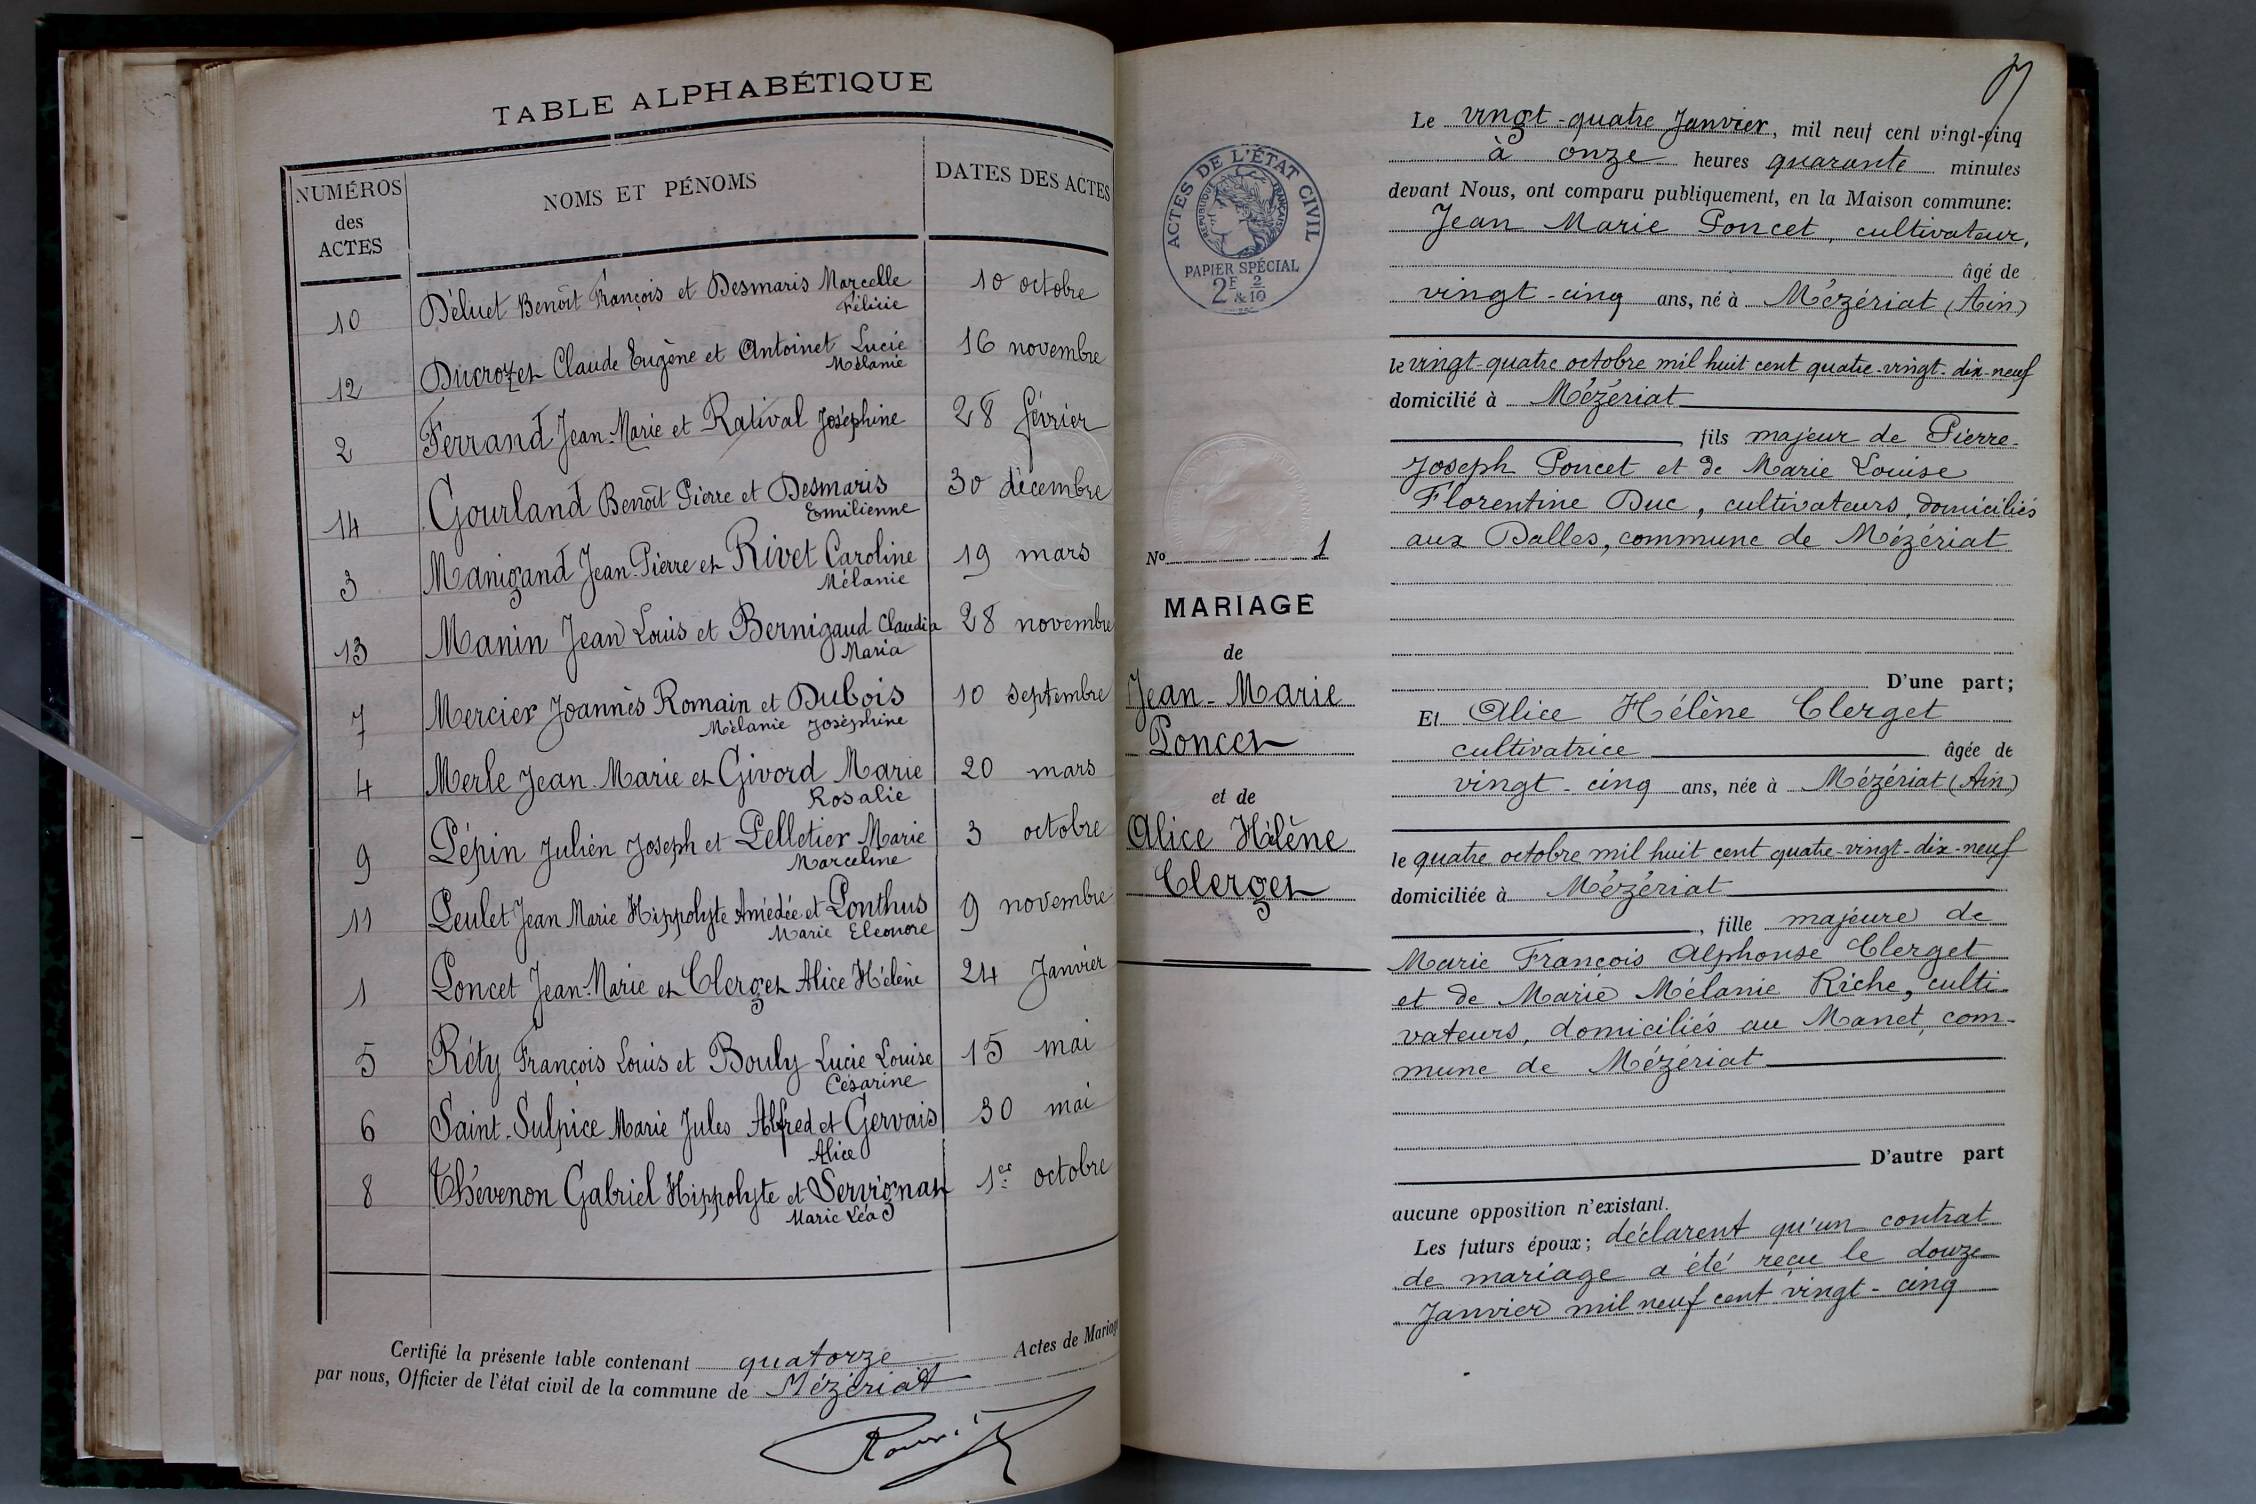 TABLE ALPHABÉTIQUE
NUMÉROS
des
ACTES
NOMS ET PÉNOMS
DATES DES ACTES
10 Déluet Benoît François et Desmaris Marcelle 10 octobre
Félicie
12 Ducrozet Claude Eugène et Antoinet Lucie 16 novembre
Mélanie
2 Ferrand Jean-Marie et Ratival Joséphine 28 février
14 Gourland Benoît Pierre et Desmaris 30 décembre
Emilienne
3 Manigand Jean-Pierre et Rivet Caroline 19 mars
Mélanie
13 Manin Jean Louis et Bernigaud Claudia 28 novembre
Maria
7 Mercier Joannès Romain et Dubois 10 septembre
Mélanie Joséphine
4 Merle Jean-Marie et Givord Marie 20 mars
Rosalie
9 Pépin Julien Joseph et Pelletier Marie 3 octobre
Marceline
11 Peulet Jean Marie Hippolyte Amédée et Ponthus 9 novembre
Marie Eleonore
1 Poncet Jean-Marie et Clerget Alice Hélène 24 Janvier
5 Réty François Louis et Bouly Lucie Louise 15 mai
Césarine
6 Saint-Sulpice Marie Jules Alfred et Gervais 30 mai
Alice
8 Thévenon Gabriel Hippolyte et Servignat 1er octobre
Marie Léa
Certifié la présente table contenant quatorze Actes de Mariage
par nous, Officier de l'état civil de la commune de Mézériat
ACTES DE L'ÉTAT CIVIL
RÉPUBLIQUE FRANÇAISE
PAPIER SPÉCIAL
2F & 2/10
No 1
MARIAGE
de
Jean-Marie
Poncet
et de
Alice Hélène
Clerget
Le vingt-quatre Janvier, mil neuf cent vingt-cinq
à onze heures quarante minutes
devant Nous, ont comparu publiquement, en la Maison commune:
Jean Marie Poncet, cultivateur,
âgé de
vingt-cinq ans, né à Mézériat (Ain)
le vingt-quatre octobre mil huit cent quatre-vingt-dix-neuf
domicilié à Mézériat
fils majeur de Pierre-
Joseph Poncet et de Marie Louise
Florentine Duc, cultivateurs, domiciliés
aux Dalles, commune de Mézériat
D'une part;
Et Alice Hélène Clerget
cultivatrice âgée de
vingt-cinq ans, née à Mézériat (Ain)
le quatre octobre mil huit cent quatre-vingt-dix-neuf
domiciliée à Mézériat
, fille majeure de
Marie François Alphonse Clerget
et de Marie Mélanie Riche, culti-
vateurs, domiciliés au Manet, com-
mune de Mézériat
D'autre part
aucune opposition n'existant.
Les futurs époux; déclarent qu'un contrat
de mariage a été reçu le douze
Janvier mil neuf cent vingt-cinq